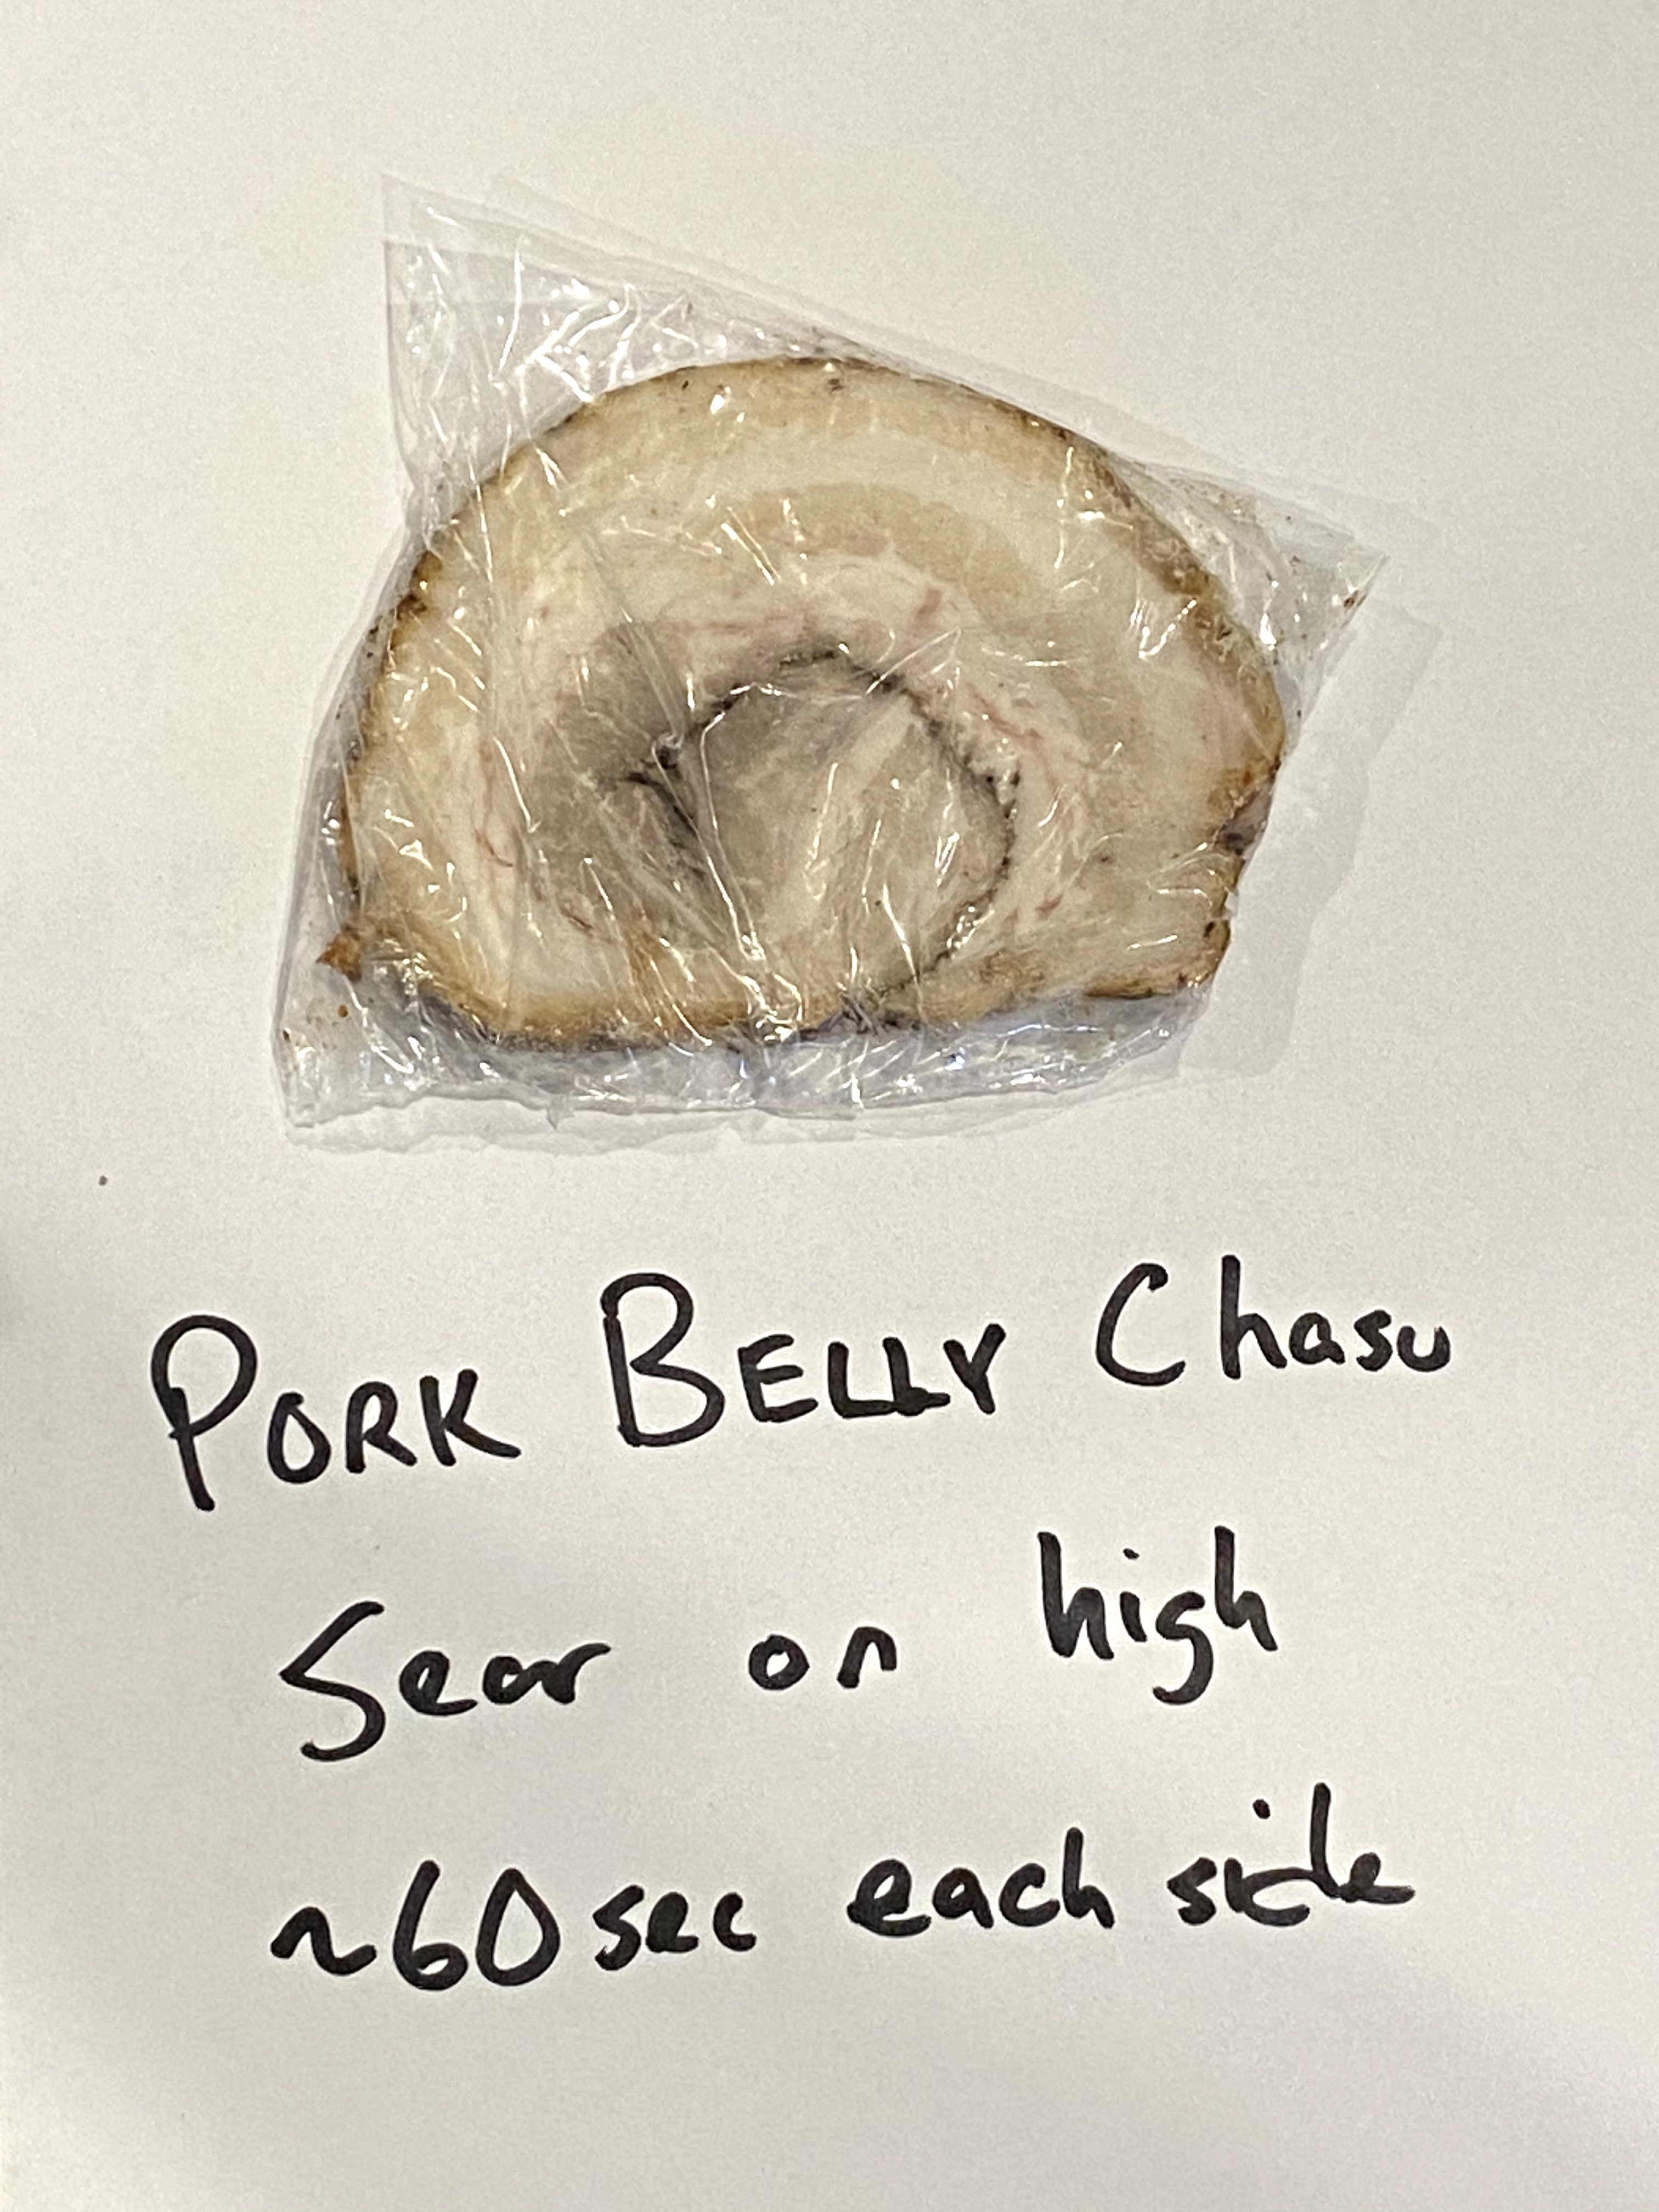 PORK BELLY Chasu
Sear on high
~60 sec each side